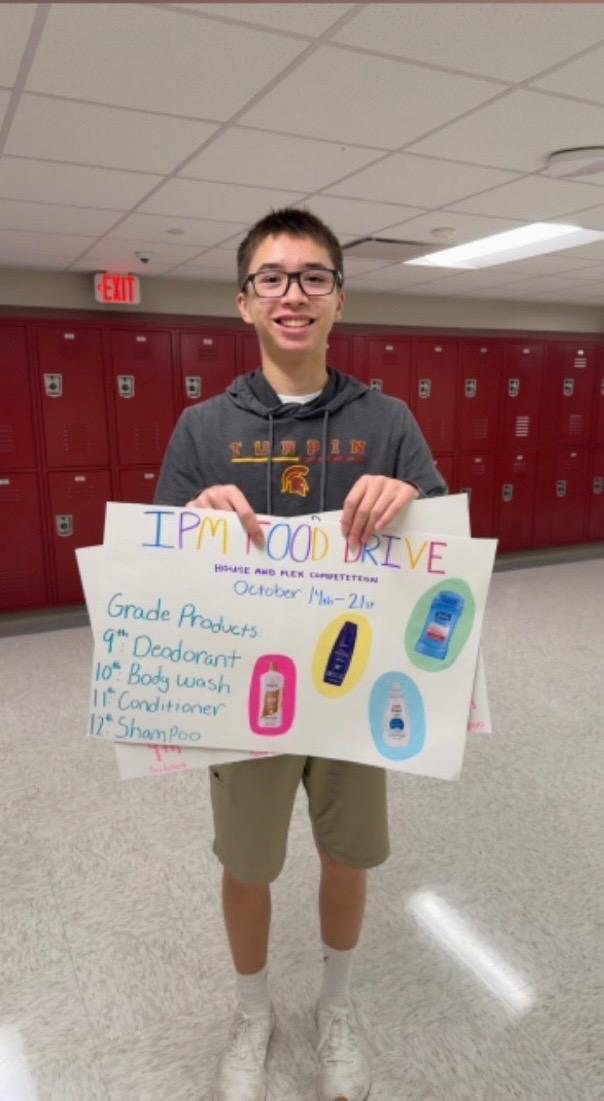 EXIT
TURPIN
IPM FOOD DRIVE
HOUSE AND PLEX COMPETITION
October 14th-21st
Grade Products:
9th: Deodorant
10th: Body wash
11th: Conditioner
12th: Shampoo